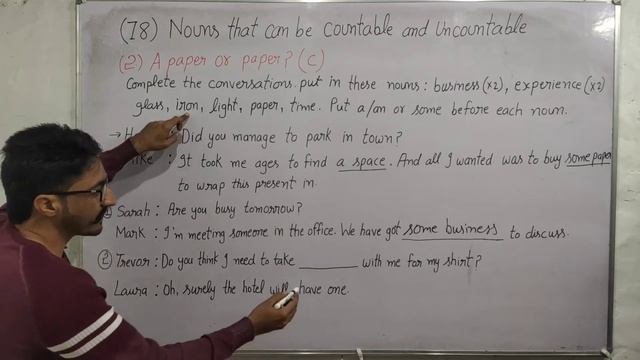 (78) Nouns that can be Countable and Uncountable
(2) A paper or paper? (C)
Complete the conversations. put in these nouns: business (x2), experience (x2)
glass, iron, light, paper, time. Put a/an or some before each noun.
→ Did you manage to park in town?
: It took me ages to find a space. And all I wanted was to buy some paper
to wrap this present in.
Sarah : Are you busy tomorrow?
Mark : I'm meeting someone in the office. We have got some business to discuss.
(2) Trevor : Do you think I need to take ______ with me for my shirt?
Laura : Oh, surely the hotel will have one.